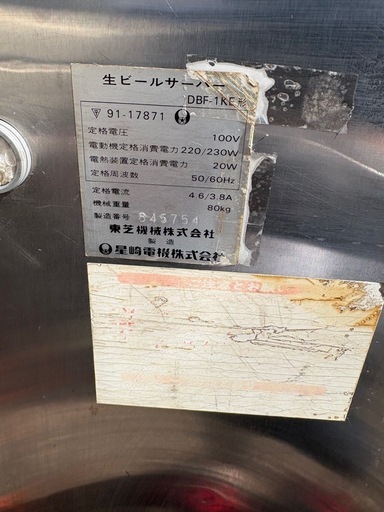 生ビールサーバー
DBF-1KE形
91-17871
定格電圧 100V
電動機定格消費電力 220/230W
電熱装置定格消費電力 20W
定格周波数 50/60Hz
定格電流 4.6/3.8A
機械重量 80kg
製造番号 845754
東芝機械株式会社
製造
星崎電機株式会社